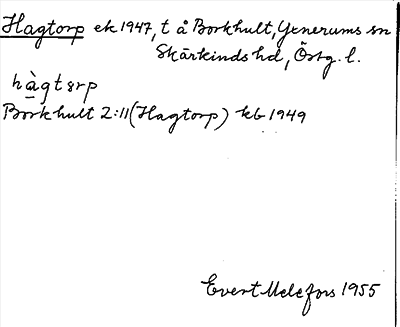 Hagtorp ek 1947, t å Borkhult, Yxnerums sn
Skärkinds hd, Östg. l.
hàgtɔrp
Borkhult 2:11 (Hagtorp) kb 1949
Evert Melefors 1955